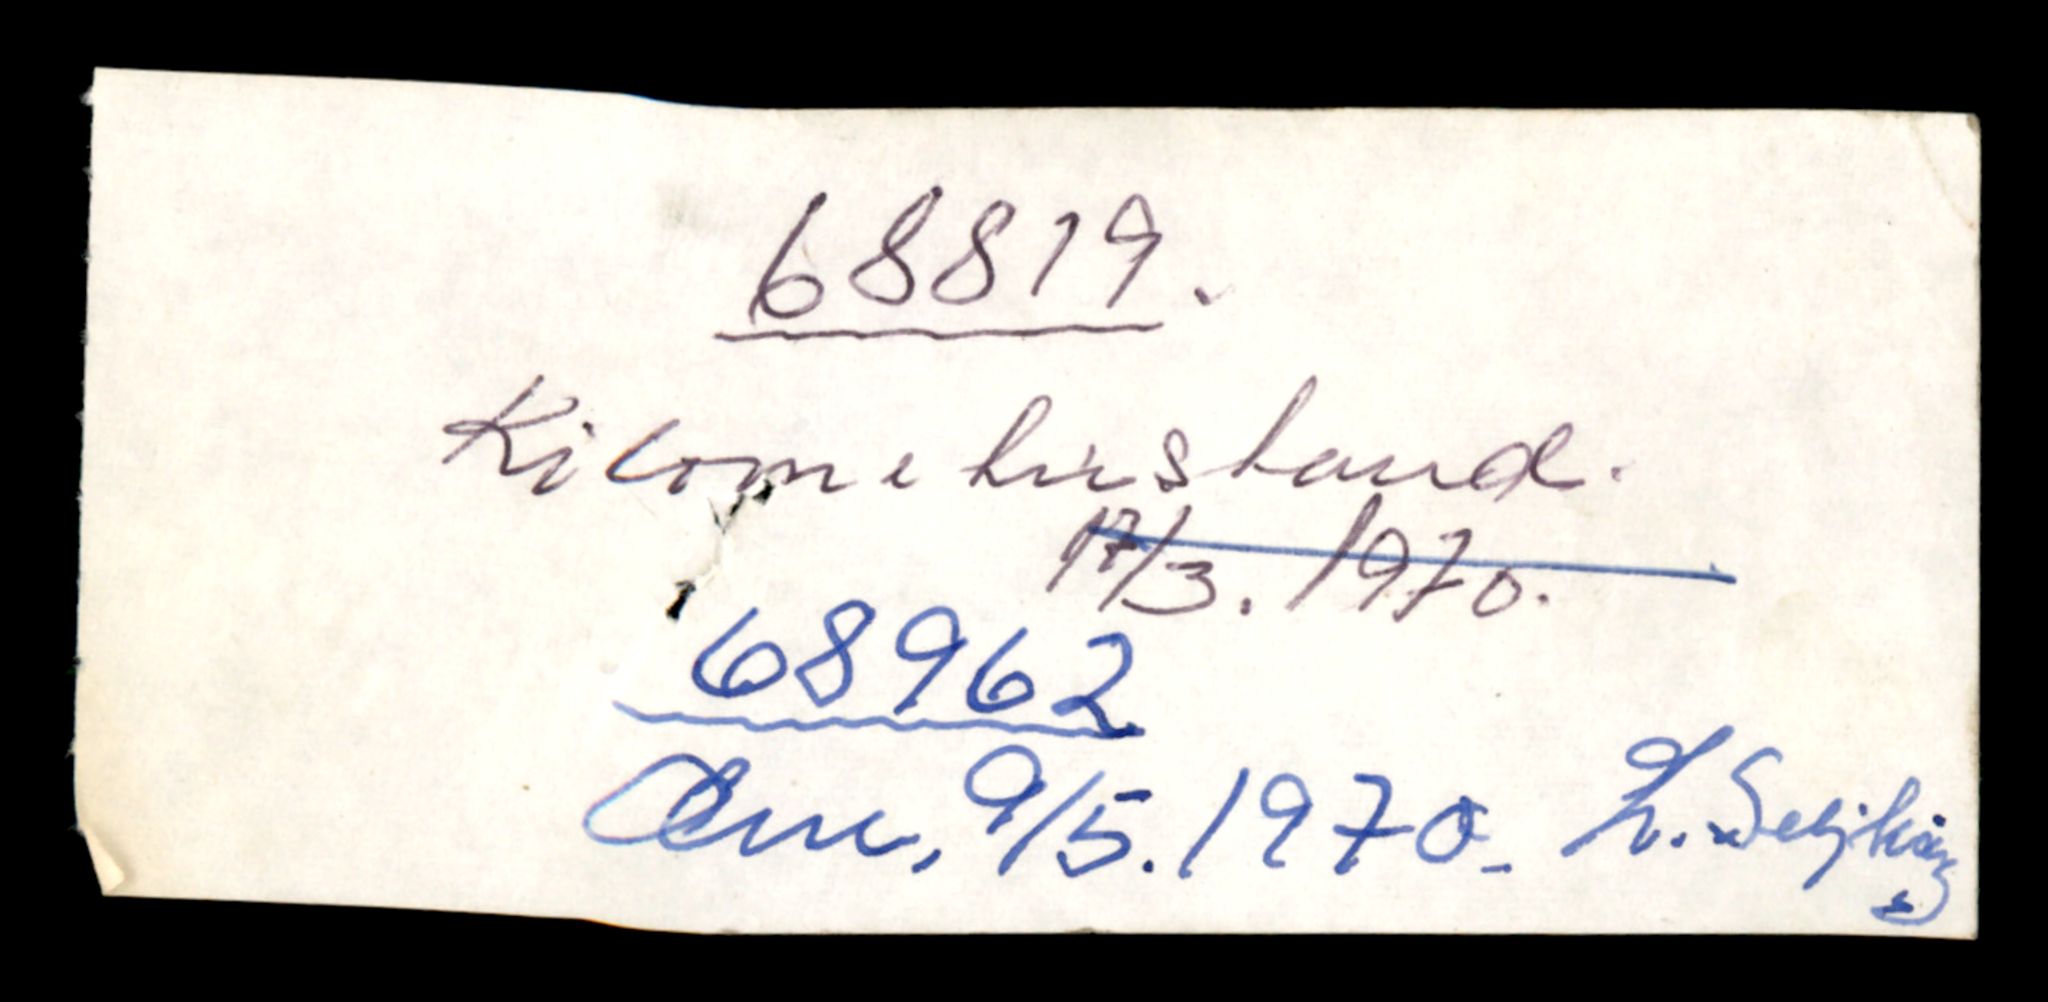 68819.
Kilometerstand.
17/3. 1970.
68962
den, 9/5. 1970.